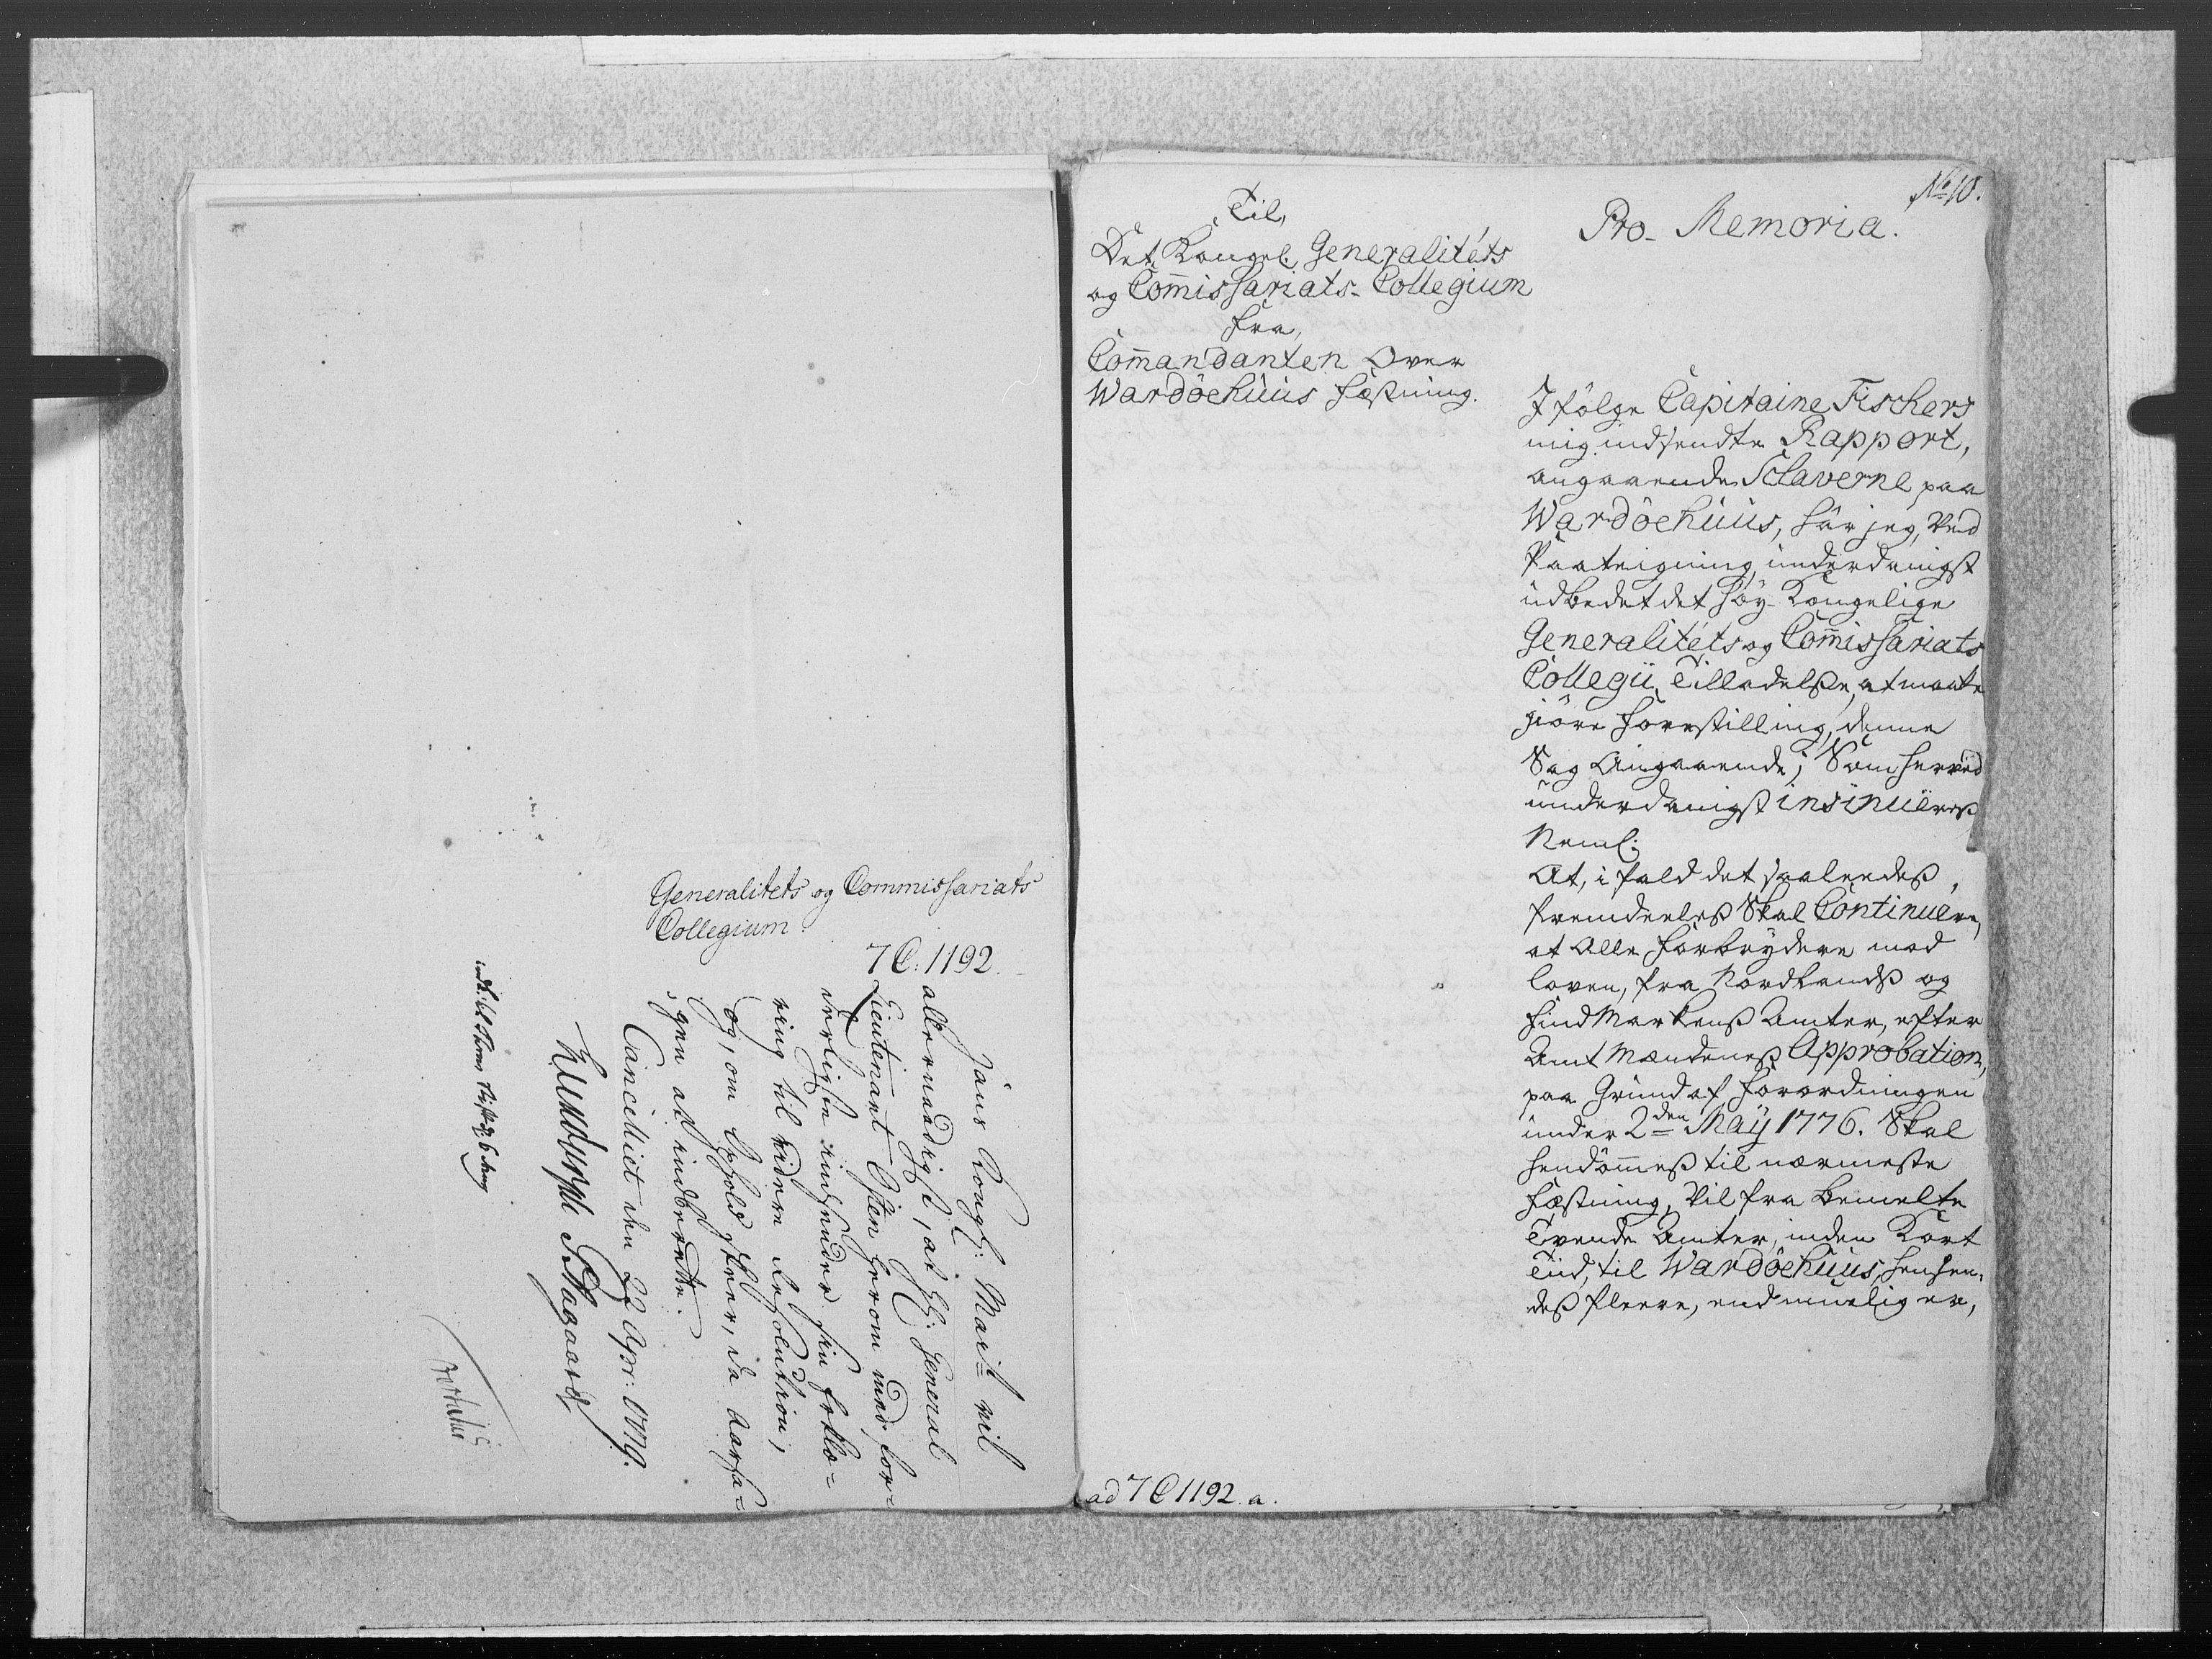 Generalitets og Commissariats
Collegium
7 C: 1192.
Hans Kongl: Mait vil
allernaadigst, at H: General
Lieutenant Osten herom med for-
derligste indsender sin Erklæ-
ring til videre Resolution,
og, om Ophold skeer, da Aarsa-
gen at indberette.
Cancelliet den 22 Apr: 1779.
No 10.
Til,
Det Kongel: Generalitéts
og Com̄issariats-Collegium
fra,
Com̄andanten Over
Wardöehuus Fæstning.
Pro-Memoria.
I fölge Capitaine Fischers
mig indsendte Rapport,
angaaende Sclaverne paa
Wardöehuus, har jeg, ved
Paateigning, underdanigst
udbedet det Höy-Kongelige
Generalitéts og Com̄issariats
Collegii Tilladelse, at maatte
giöre Forestilling, denne
Sag Angaaende; Som herved
underdanigst insinueres
Neml:
At, i fald det saaledes,
fremdeeles Skal Continuere,
at Alle Forbrydere mod
loven, fra Nordlands og
Findmarkens Amter, efter
Amtmændenes Approbation,
paa Grund af Forordningen
under 2den Maÿ 1776. Skal
hendöm̄es til nærmeste
Fæstning, Vil fra bemelte
Tvende Amter, inden Kort
Tiid, til Wardöehuus, hensen-
des fleere, end muelig er,
ad 7 C 1192. a.